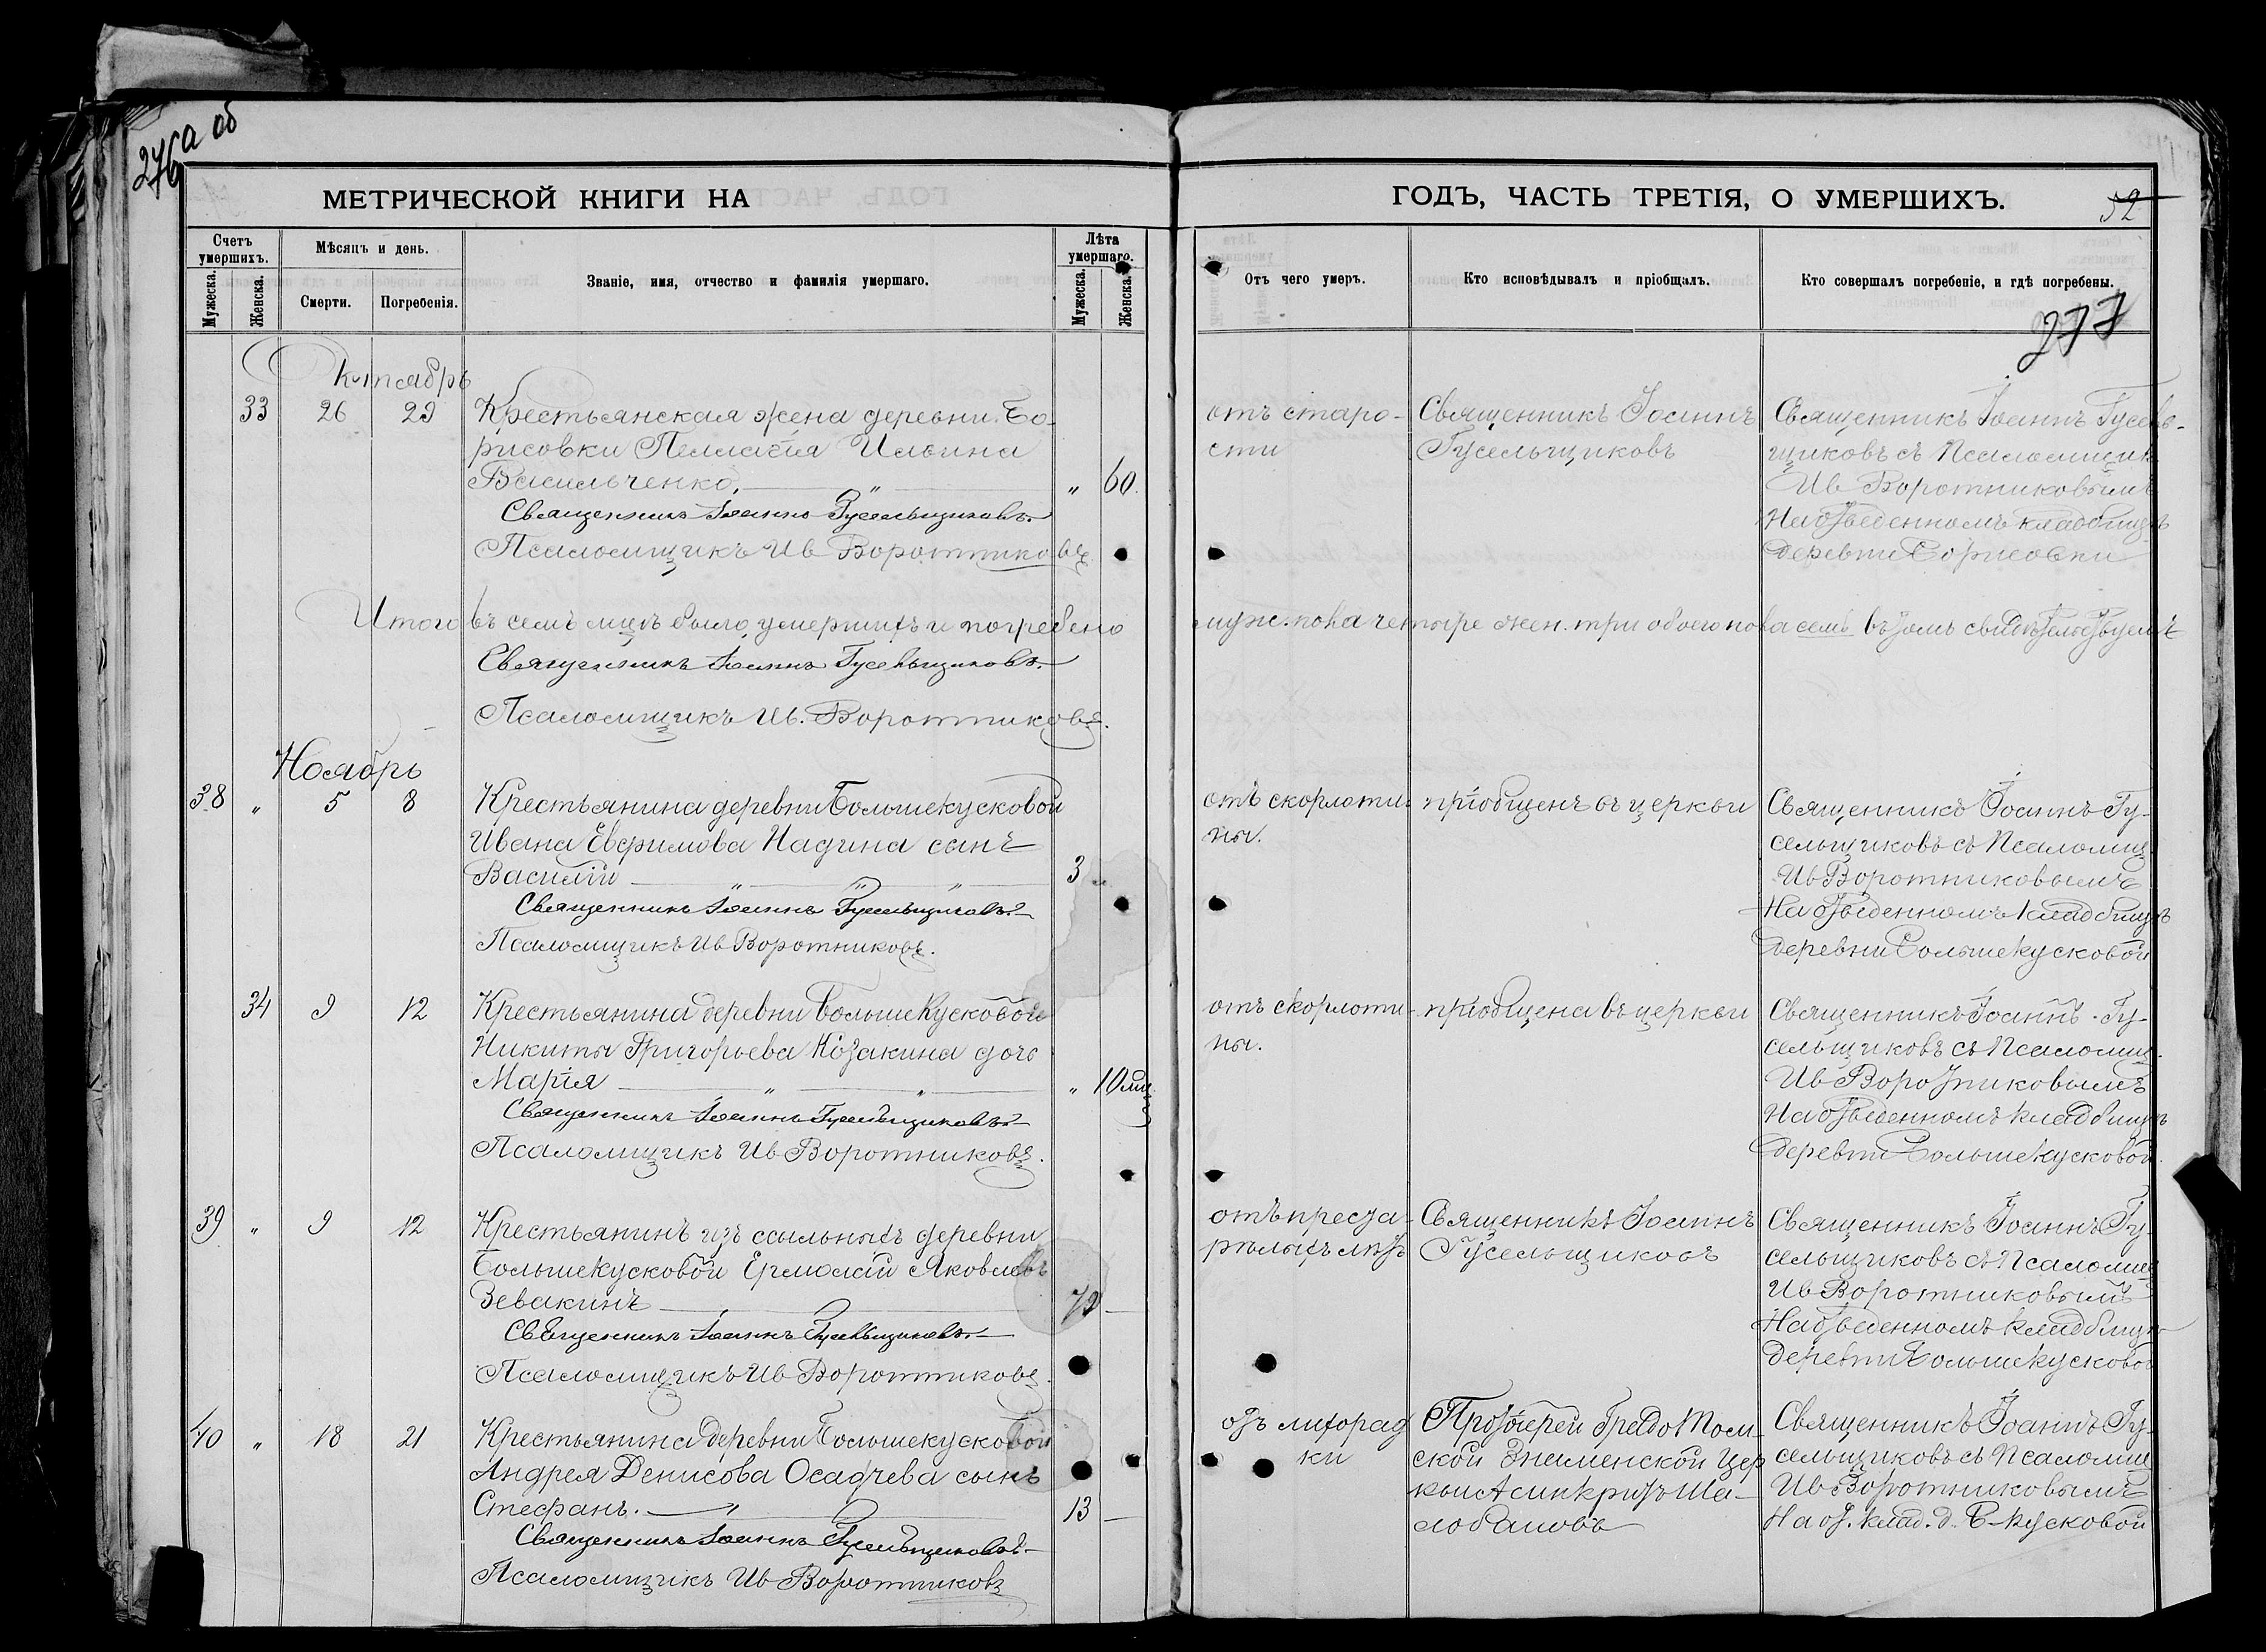 276а об
МЕТРИЧЕСКОЙ КНИГИ НА
Счетъ умершихъ.
Мужеска.
Женска.
Мѣсяцъ и день.
Смерти.
Погребенія.
Званіе, имя, отчество и фамилія умершаго.
Лѣта умершаго.
Мужеска.
Женска.
Октябрь
33 26 29 Крестьянская жена деревни Бо-
рисовки Пелагія Ильина
Васильченко, " 60.
Священникъ Іоаннъ Гусельщиковъ.
Псаломщикъ Ив Воротниковъ
Итого въ семъ мцѣ было умершихъ и погребено
Священникъ Іоаннъ Гусельщиковъ.
Псаломщикъ Ив. Воротниковъ.
Ноябрь
38 " 5 8 Крестьянина деревни Большекусковой
Ивана Евфимова Надина сынъ
Василій 3
Священникъ Іоаннъ Гусельщиковъ
Псаломщикъ Ив Воротниковъ.
34 9 12 Крестьянина деревни Большекусковой
Никиты Григорьева Козакина дочь
Марія " 10 мц.
Священникъ Іоаннъ Гусельщиковъ
Псаломщикъ Ив Воротниковъ.
39 " 9 12 Крестьянинъ изъ ссыльныхъ деревни
Большекусковой Ермолай Яковлевъ
Зевакинъ 72
Священникъ Іоаннъ Гусельщиковъ
Псаломщикъ Ив Воротниковъ.
40 " 18 21 Крестьянина деревни Большекусковой
Андрея Денисова Осадчева сынъ
Стефанъ. 13
Священникъ Іоаннъ Гусельщиковъ
Псаломщикъ Ив Воротниковъ
ГОДЪ, ЧАСТЬ ТРЕТІЯ, О УМЕРШИХЪ.
52
Отъ чего умеръ.
Кто исповѣдывалъ и пріобщалъ.
Кто совершалъ погребеніе, и гдѣ погребены.
277
отъ старо-
сти
Священникъ Іоаннъ
Гусельщиковъ
Священникъ Іоаннъ Гусель-
щиковъ съ Псаломщик
Ив Воротниковымъ
На отведенномъ кладбищѣ
деревни Борисовки
муж. пола четыре жен. три обоего пола семь въ томъ свидѣтельствуемъ
отъ скорлоти-
ны.
пріобщенъ въ церкви
Священникъ Іоаннъ Гу-
сельщиковъ съ Псаломщ
Ив Воротниковымъ
На отведенномъ кладбищѣ
деревни Большекусковой
отъ скорлоти-
ны.
пріобщена въ церкви
Священникъ Іоаннъ Гу-
сельщиковъ съ Псаломщ.
Ив Воротниковымъ
На отведенномъ кладбищѣ
деревни Большекусковой.
отъ преста-
рѣлыхъ лѣтъ
Священникъ Іоаннъ
Гусельщиковъ
Священникъ Іоаннъ Гу-
сельщиковъ съ Псаломщ
Ив Воротниковымъ
На отведенномъ кладбищѣ
деревни Большекусковой
отъ лихорад
ки
Протоіерей Градо Том-
ской Знаменской Цер
кви Асинкритъ Ша-
лобановъ
Священникъ Іоаннъ Гу-
сельщиковъ съ Псаломщ
Ив Воротниковымъ
На от. клад. д. Б-кусковой